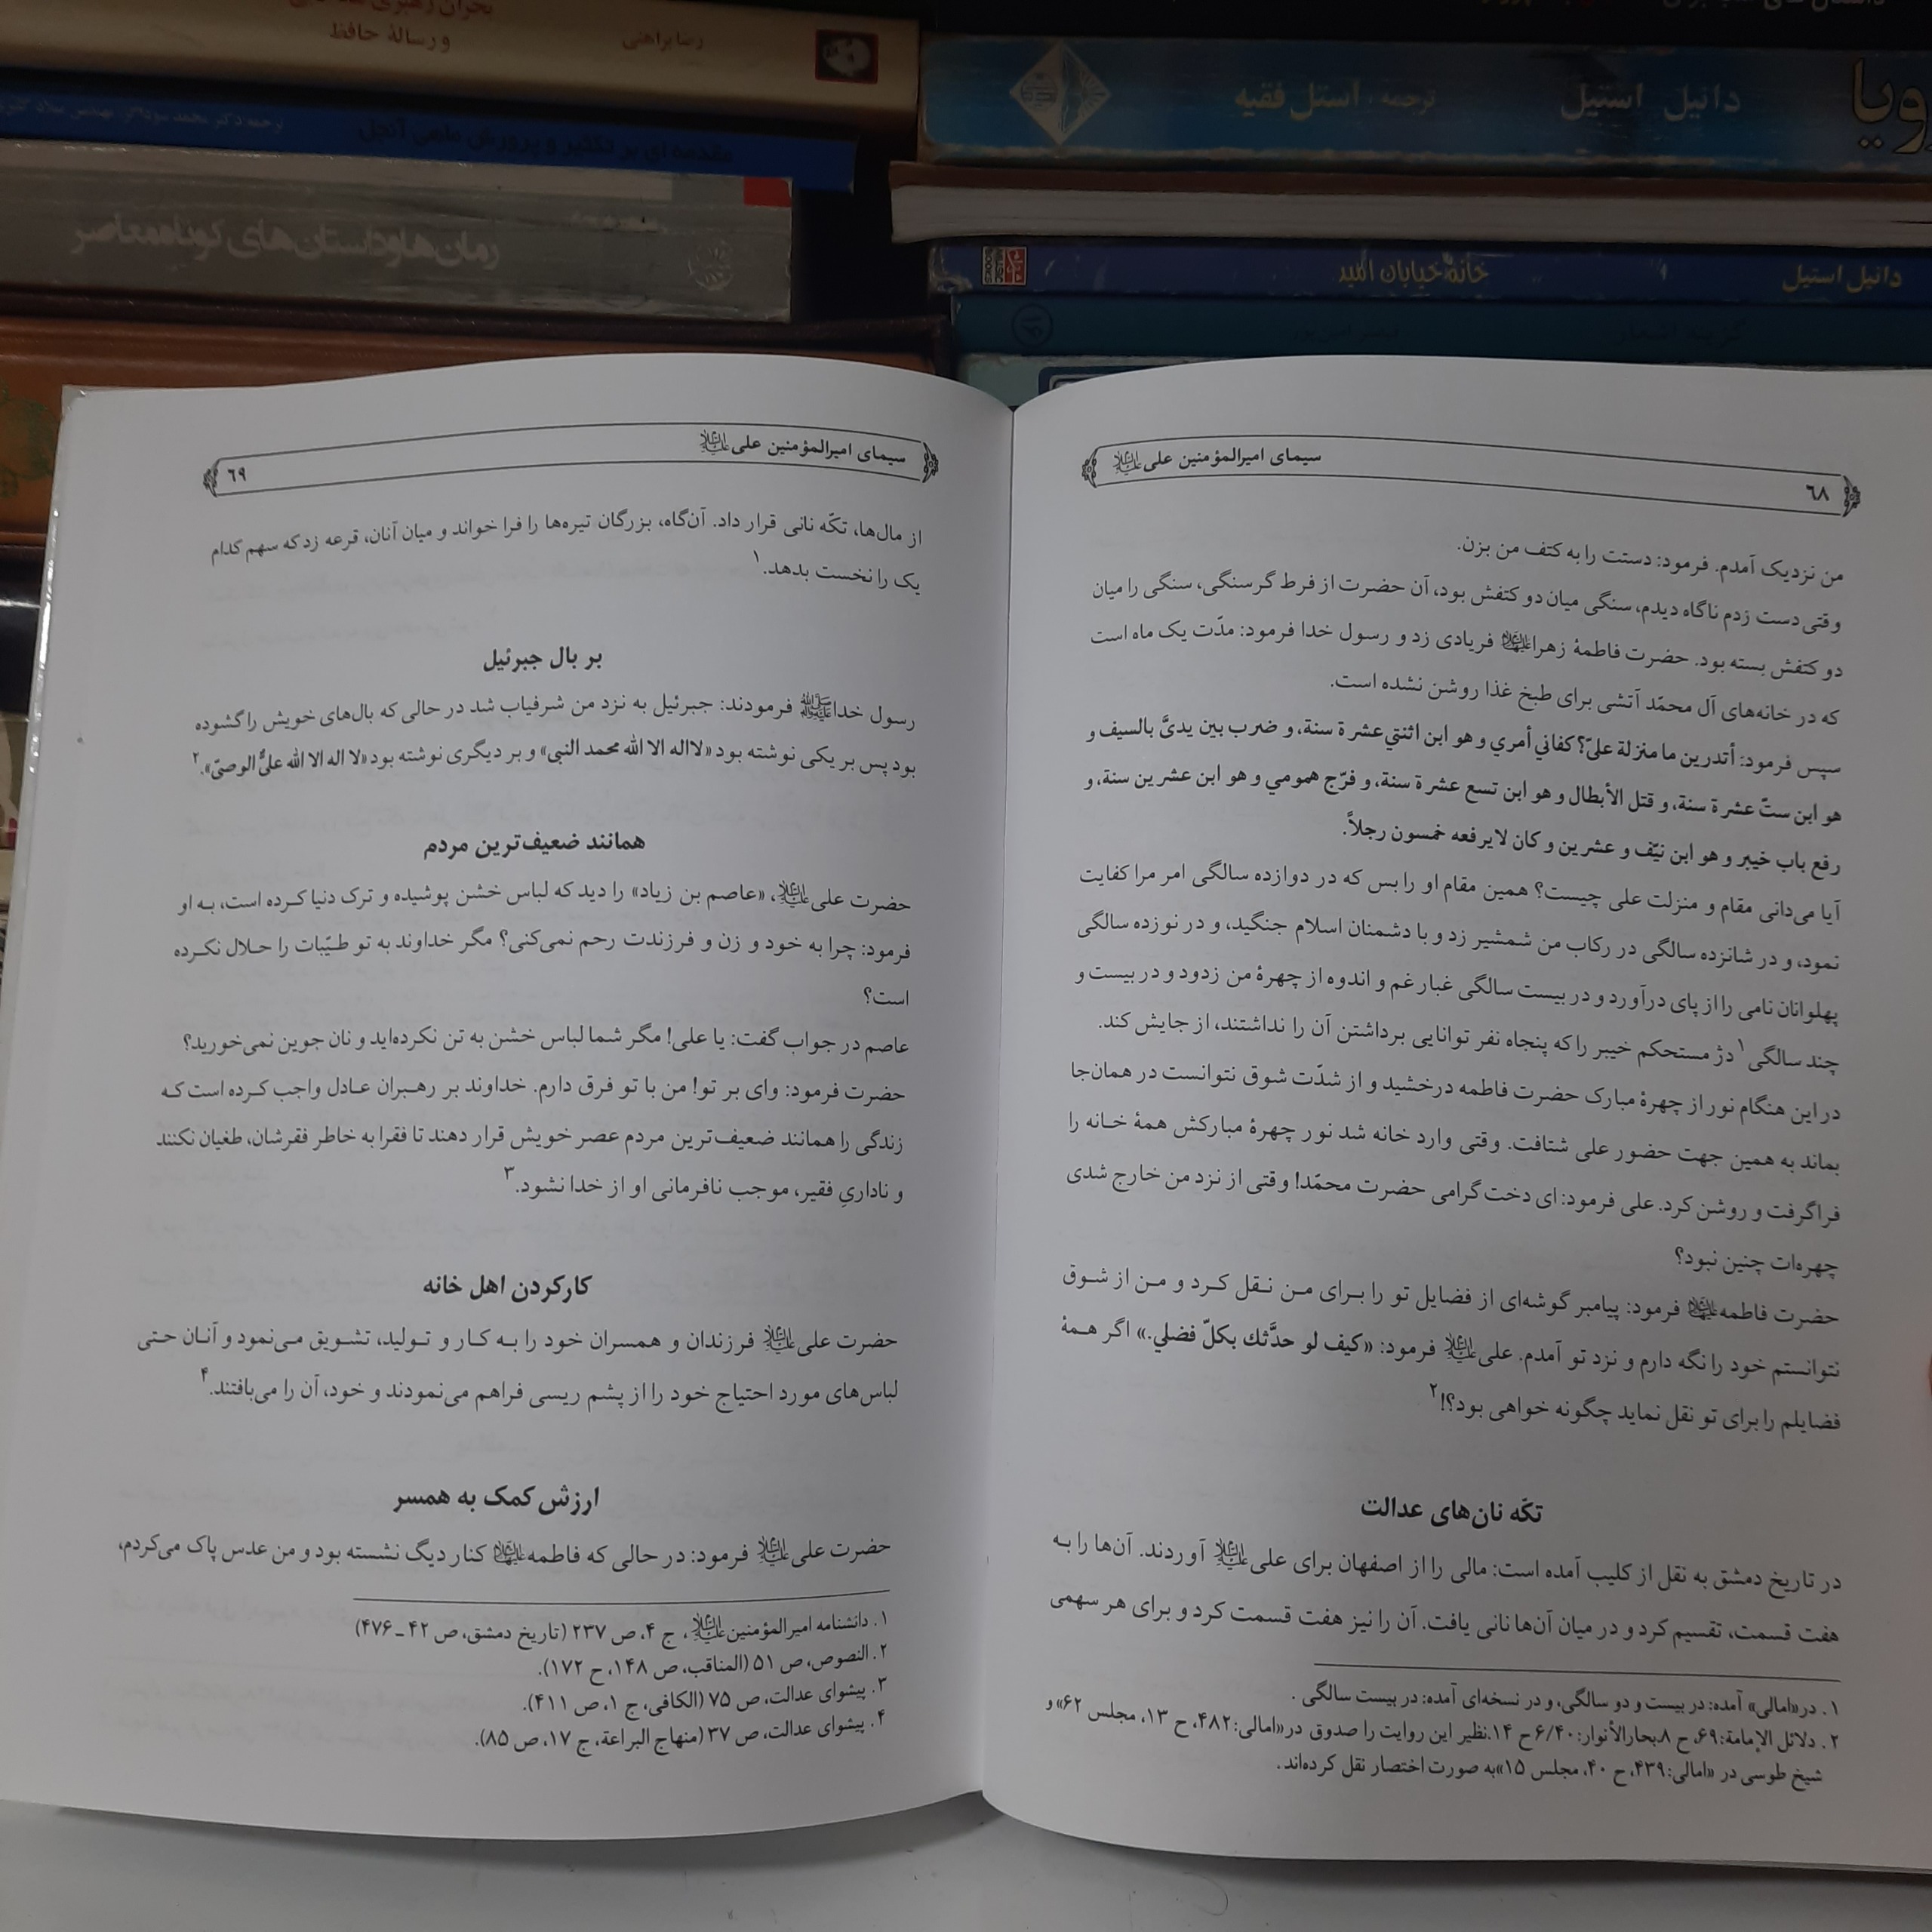 و رسالهٔ حافظ
رضا براهنی
مقدمه ای بر تکثیر و پرورش ماهی آنجل
رمان‌ها و داستان‌های کوتاه معاصر
دانیل استیل
ترجمه: استل فقیه
رویا
دانیل استیل
خانهٔ خیابان امید
سیمای امیرالمؤمنین علی علیه‌السلام
۶۸
من نزدیک آمدم. فرمود: دستت را به کتف من بزن.
وقتی دست زدم ناگاه دیدم، سنگی میان دو کتفش بود، آن حضرت از فرط گرسنگی، سنگی را میان
دو کتفش بسته بود. حضرت فاطمهٔ زهرا علیهاالسلام فریادی زد و رسول خدا فرمود: مدّت یک ماه است
که در خانه‌های آل محمّد آتشی برای طبخ غذا روشن نشده است.
سپس فرمود: أتدرین ما منزلة عليّ؟ كفاني أمري و هو ابن اثنتي عشرة سنة، و ضرب بین یديَّ بالسیف و
هو ابن ستّ عشرة سنة، و قتل الأبطال و هو ابن تسع عشرة سنة، و فرّج همومي و هو ابن عشرین سنة، و
رفع باب خیبر و هو ابن نیّف و عشرین و كان لایرفعه خمسون رجلاً.
آیا می‌دانی مقام و منزلت علی چیست؟ همین مقام او را بس که در دوازده سالگی امر مرا کفایت
نمود، و در شانزده سالگی در رکاب من شمشیر زد و با دشمنان اسلام جنگید، و در نوزده سالگی
پهلوانان نامی را از پای درآورد و در بیست سالگی غبار غم و اندوه از چهرهٔ من زدود و در بیست و
چند سالگی۱ دژ مستحکم خیبر را که پنجاه نفر توانایی برداشتن آن را نداشتند، از جایش کند.
در این هنگام نور از چهرهٔ مبارک حضرت فاطمه درخشید و از شدّت شوق نتوانست در همان‌جا
بماند به همین جهت حضور علی شتافت. وقتی وارد خانه شد نور چهرهٔ مبارکش همهٔ خانه را
فراگرفت و روشن کرد. علی فرمود: ای دخت گرامی حضرت محمّد! وقتی از نزد من خارج شدی
چهره‌ات چنین نبود؟
حضرت فاطمه علیهاالسلام فرمود: پیامبر گوشه‌ای از فضایل تو را برای من نقل کرد و من از شوق
نتوانستم خود را نگه دارم و نزد تو آمدم. علی علیه‌السلام فرمود: «كیف لو حدَّثك بكلّ فضلي.» اگر همهٔ
فضایلم را برای تو نقل نماید چگونه خواهی بود؟!۲
تکّه نان‌های عدالت
در تاریخ دمشق به نقل از کلیب آمده است: مالی را از اصفهان برای علی علیه‌السلام آوردند. آن‌ها را به
هفت قسمت، تقسیم کرد و در میان آن‌ها نانی یافت. آن را نیز هفت قسمت کرد و برای هر سهمی
۱. در «امالی» آمده: در بیست و دو سالگی، و در نسخه‌ای آمده: در بیست سالگی .
۲. دلائل الإمامة: ۶۹، ح ۸. بحارالأنوار: ۶/۴۰ ح ۱۴. نظیر این روایت را صدوق در «امالی: ۴۸۲، ح ۱۳، مجلس ۶۲» و
شیخ طوسی در «امالی: ۴۳۹، ح ۴۰، مجلس ۱۵» به صورت اختصار نقل کرده‌اند.
سیمای امیرالمؤمنین علی علیه‌السلام
۶۹
از مال‌ها، تکّه نانی قرار داد. آن‌گاه، بزرگان تیره‌ها را فرا خواند و میان آنان، قرعه زد که سهم کدام
یک را نخست بدهد.۱
بر بال جبرئیل
رسول خدا صلی‌الله‌علیه‌وآله فرمودند: جبرئیل به نزد من شرفیاب شد در حالی که بال‌های خویش را گشوده
بود پس بر یکی نوشته بود «لااله الا الله محمد النبی» و بر دیگری نوشته بود «لا اله الا الله علیٌّ الوصیّ».۲
همانند ضعیف‌ترین مردم
حضرت علی علیه‌السلام، «عاصم بن زیاد» را دید که لباس خشن پوشیده و ترک دنیا کرده است، به او
فرمود: چرا به خود و زن و فرزندت رحم نمی‌کنی؟ مگر خداوند به تو طیّبات را حلال نکرده
است؟
عاصم در جواب گفت: یا علی! مگر شما لباس خشن به تن نکرده‌اید و نان جوین نمی‌خورید؟
حضرت فرمود: وای بر تو! من با تو فرق دارم. خداوند بر رهبران عادل واجب کرده است که
زندگی را همانند ضعیف‌ترین مردم عصر خویش قرار دهند تا فقرا به خاطر فقرشان، طغیان نکنند
و ناداریِ فقیر، موجب نافرمانی او از خدا نشود.۳
کارکردن اهل خانه
حضرت علی علیه‌السلام فرزندان و همسران خود را به کار و تولید، تشویق می‌نمود و آنان حتی
لباس‌های مورد احتیاج خود را از پشم ریسی فراهم می‌نمودند و خود، آن را می‌بافتند.۴
ارزش کمک به همسر
حضرت علی علیه‌السلام فرمود: در حالی که فاطمه علیهاالسلام کنار دیگ نشسته بود و من عدس پاک می‌کردم،
۱. دانشنامه امیرالمؤمنین علیه‌السلام، ج ۴، ص ۲۳۷ (تاریخ دمشق، ص ۴۲ ـ ۴۷۶)
۲. النصوص، ص ۵۱ (المناقب، ص ۱۴۸، ح ۱۷۲).
۳. پیشوای عدالت، ص ۷۵ (الکافی، ج ۱، ص ۴۱۱).
۴. پیشوای عدالت، ص ۳۷ (منهاج البراعة، ج ۱۷، ص ۸۵).